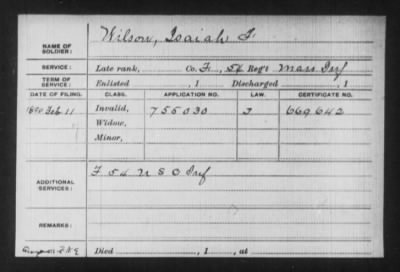 Wilson, Isaiah F.
NAME OF SOLDIER:
SERVICE: Late rank, Co. F, 54 Reg't Mass Inf
TERM OF SERVICE: Enlisted , 1 Discharged , 1
DATE OF FILING. CLASS. APPLICATION NO. LAW. CERTIFICATE NO.
1890 Feb 11 Invalid, 755030 J 669642
Widow,
Minor,
ADDITIONAL SERVICES: F 54 U S C Inf
REMARKS:
Died , 1 , at